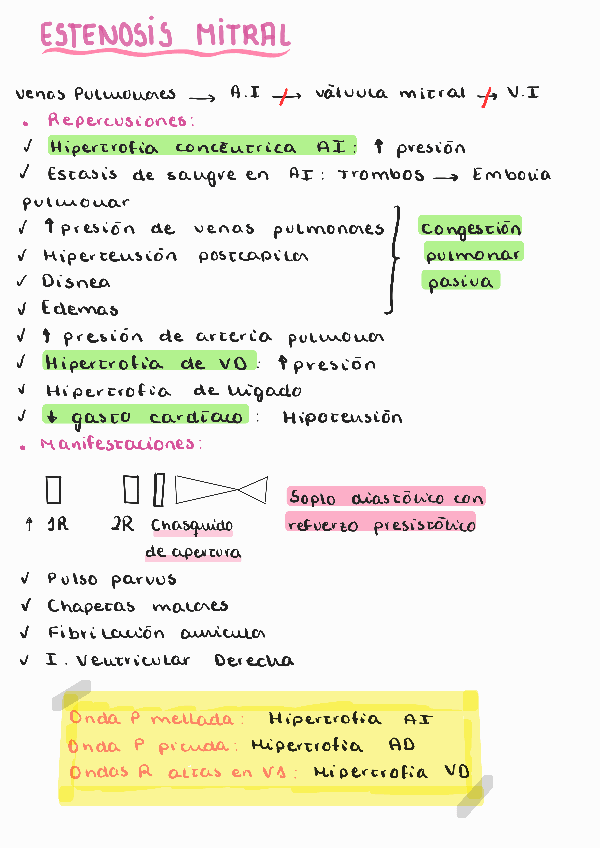 ESTENOSIS MITRAL
venas Pulmonares → A.I → válvula mitral → V.I
• Repercusiones:
✓ Hipertrofia concéntrica AI: ↑ presión
✓ Estasis de sangre en AI: Trombos → Embolia
pulmonar
✓ ↑ presión de venas pulmonares
✓ Hipertensión postcapilar
✓ Disnea
✓ Edemas
congestión
pulmonar
pasiva
✓ ↑ presión de arteria pulmonar
✓ Hipertrofia de VD: ↑ presión
✓ Hipertrofia de hígado
✓ ↓ gasto cardíaco: Hipotensión
• Manifestaciones:
↑ 1R 2R Chasquido
de apertura
Soplo diastólico con
refuerzo presistólico
✓ Pulso parvus
✓ Chapetas malares
✓ Fibrilación auricular
✓ I. Ventricular Derecha
Onda P mellada: Hipertrofia AI
Onda P picuda: Hipertrofia AD
Ondas R altas en V1: Hipertrofia VD